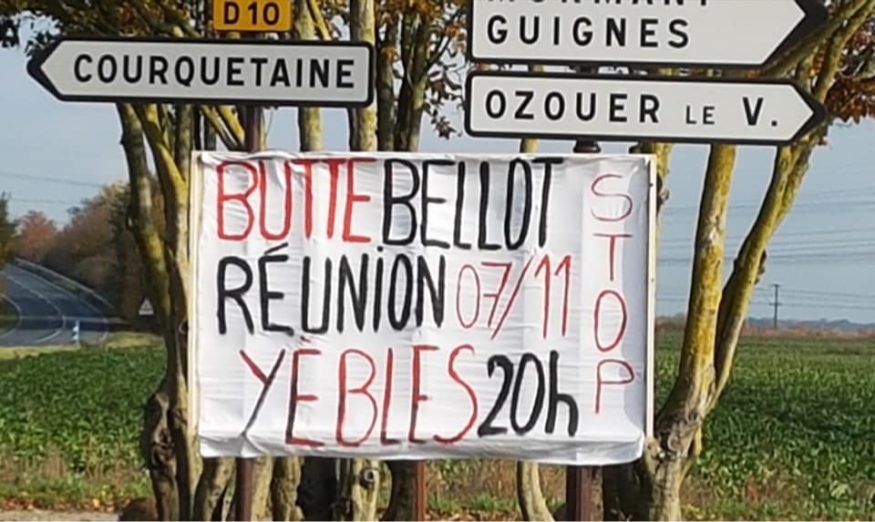 D10
COURQUETAINE
MORMANT
GUIGNES
OZOUER LE V.
BUTTE BELLOT
RÉUNION 07/11
YÈBLES 20h
STOP